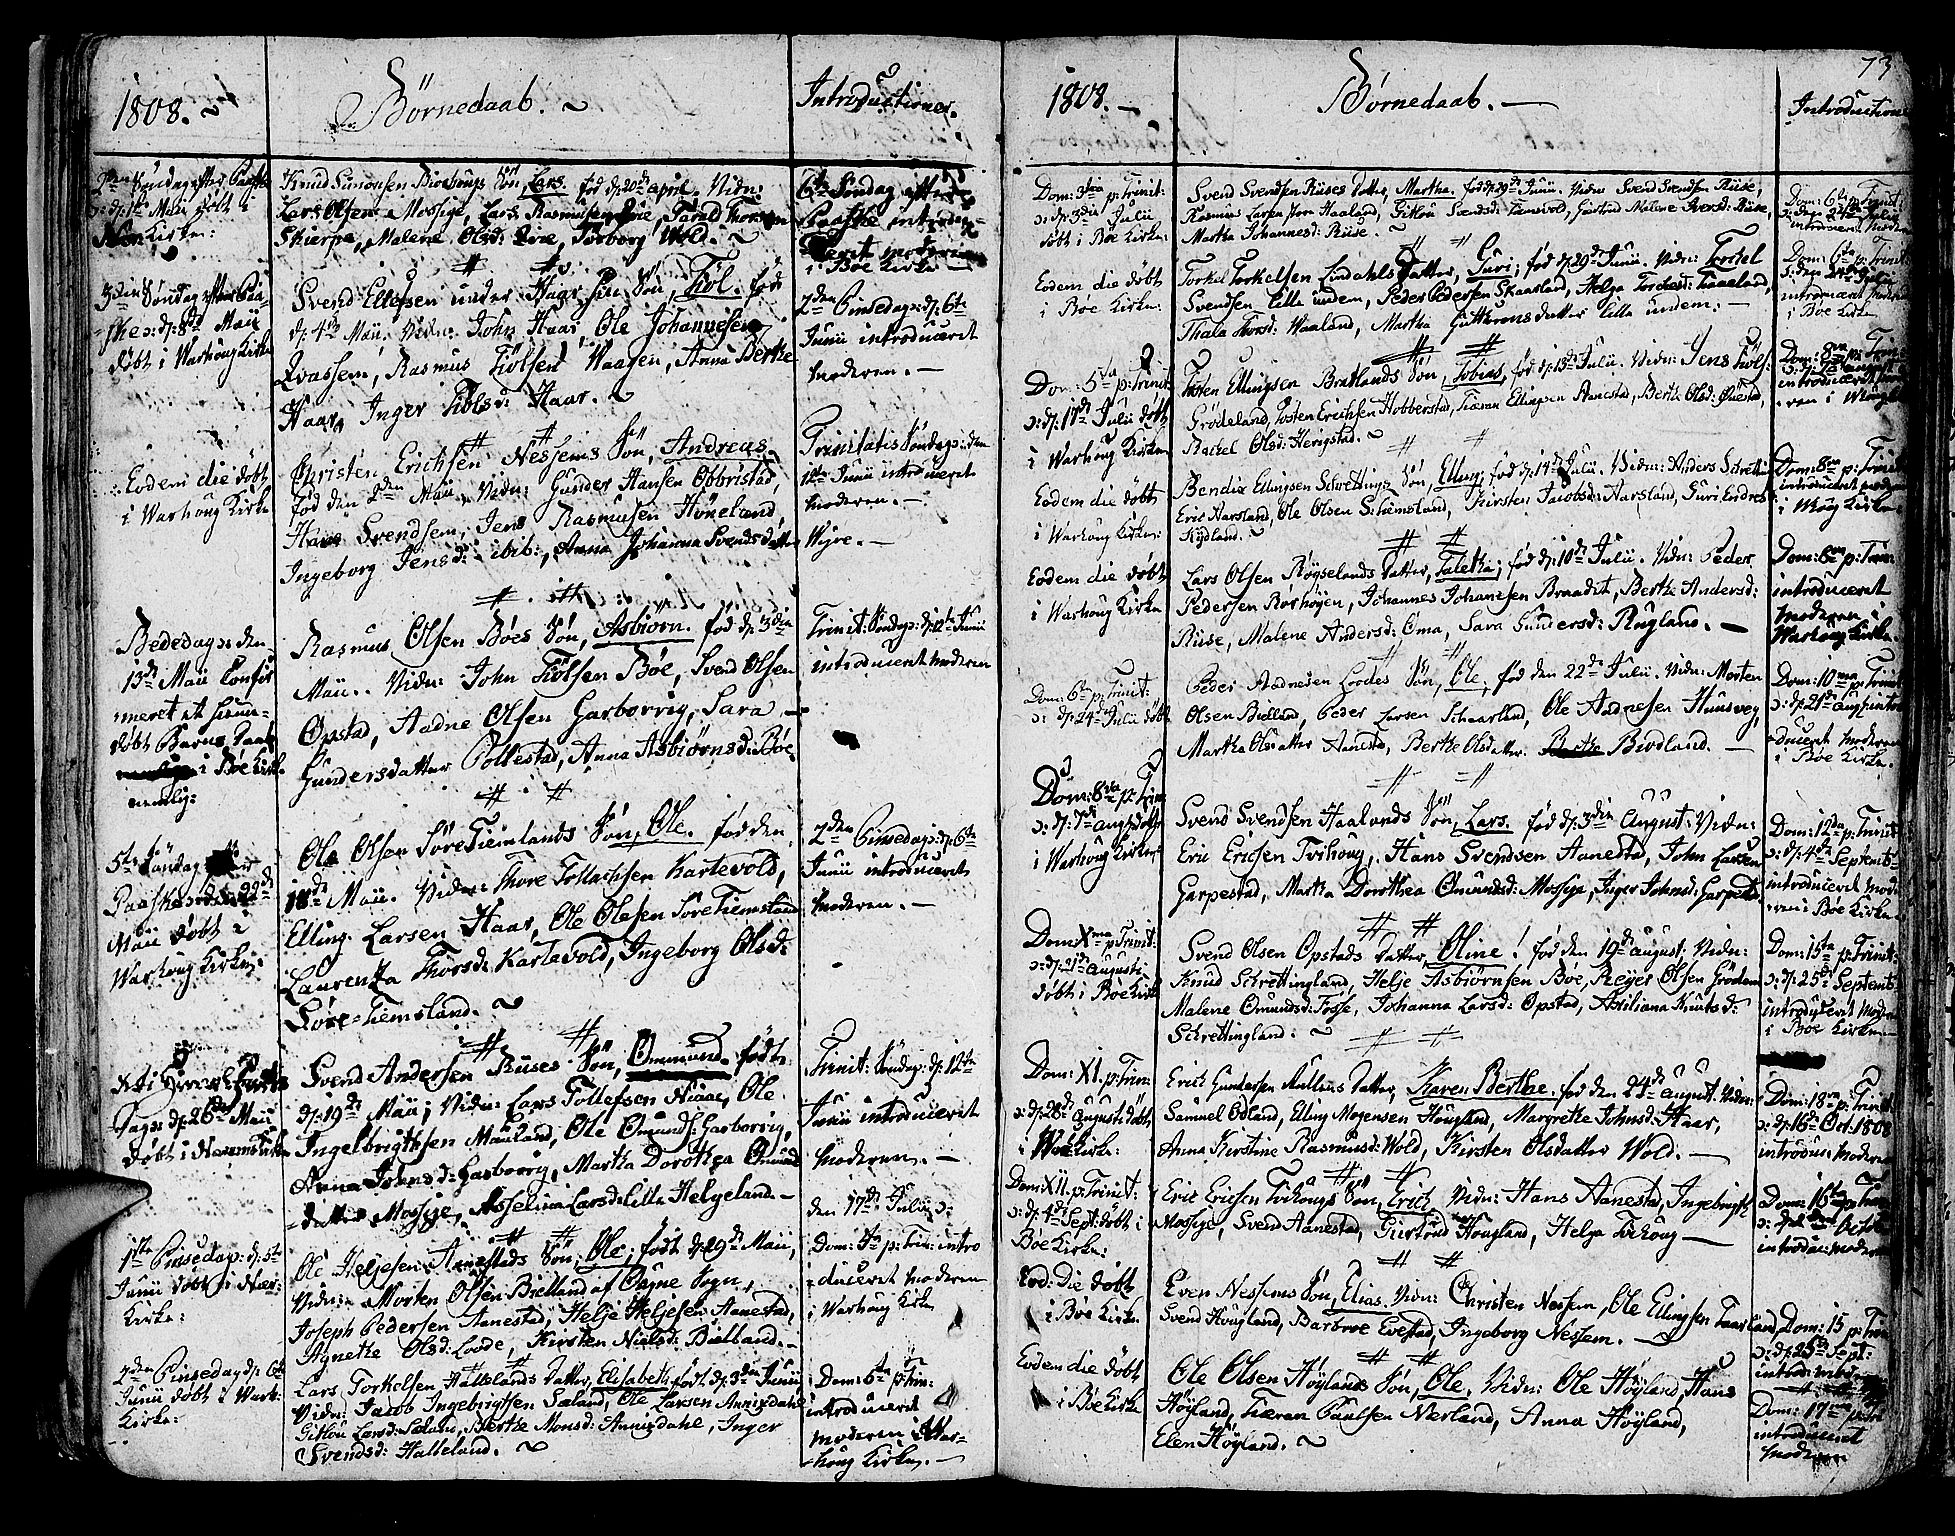 1808.
Börnedaab.
Introductioner.
2den Søndag efter Paaske
ɔ: d: 1ste Maii døbt i
Kirke:
Knud Simonsen Søn, Lars. fød d: 20de april. Vidn:
Lars Olsen Mossige, Lars Rasmusen Tarald Thorsen
Skierpe, Malene Olsd: Torborg Wold.
6te Søndag efter
Paaske introdu-
ceret moderen
i Böe Kirke
3die Søndag efter Paa-
ske ɔ: d: 8de Maii
døbt i Warhoug Kirke
Svend Ellefsen under Haar hans Søn, Fiöl. fød
d: 4de Maii. Vidn: John Haar, Ole Johannesen
Qvassem, Rasmus Fiölsen Waagen, Anna Berthe
Haar, Inger Fiölsd: Haar.
2den Pinsedag: d: 6te
Junii introduceret
moderen.
Eodem die døbt
i Warhoug Kirke
Christen Erichsen Nessems Søn, Andreas.
fød den 2den Maii. Vidn: Gunder Hansen Obbristad,
Hans Svendsen, Jens Rasmusen Höneland
Ingeborg Jensd: ibid:, Anna Johanna Svendsdatter
Trinitatis Søndag: den
12te Junii introduceret
moderen.
Wigre.
Bededag: den
13de Maii Confir-
meret et hiem-
døbt Barns Daab
i Böe Kirke
nemlig:
Rasmus Olsen Böes Søn, Asbiörn. fød d: 3die
Maii. Vidn: John Fiölsen Böe, Svend Olsen
Opstad, Aadne Olsen Garborrig, Sara
Gundersdatter Pollestad, Anna Asbiörnsd: Böe
Trinit: Søndag: d: 12te Junii
introduceret moderen
5te Søndag efter
Paaske ɔ: d: 22de
Maii døbt i
Warhoug Kirke.
Ole Olsen Söre Tiemlands Søn, Ole. fød den
18de Maii. Vidn: Thore Tollachsen Kartevold,
Elling Larsen Haar, Ole Olesen Söre Tiemsland
Laurentza Thorsd: Kartavold, Ingeborg Olsd:
Söre-Tiemsland.
2den Pinsedag: d: 6te
Junii introduceret
moderen.
Christi Himmelfarts
Dag: d: 26de Maii
døbt i Nærem Kirke
Svend Andersen Rüses Søn, Ommund. født
d: 19de Maii; Vidn: Lars Tollefsen Niaae, Ole
Ingelbrigtsen Mauland, Ole Omunds: Garborrig,
Anna Johnsd: Garborrig, Martha Dorothea Omund
datter Mossige, Asselina Larsd: lille Helgeland.
Trinit: Søndag: d: 12te
Junii introduceret
moderen.
1ste Pinsedag: d: 5te
Junii døbt i Nær:
Kirke:
Ole Heljesen Aanestads Søn, Ole, født d: 29de Maii,
Vidn: Morten Olsen Bielland af Ougne Sogn,
Joseph Pedersen Aanestad, Helje Heljesen Aanestad,
Agnethe Olsd: Loode, Kirsten Nielsd: Bielland.
den 17de Julii ɔ:
Dom: 5ta p: Trin: intro
duceret moderen
i Warhoug Kirke
2den Pinsedag d: 6te
Junii døbt i Warh:
Kirke:
Lars Torkelsen Hallelands Datter, Elisabeth, født d: 3die Junii
Vidn: Jacob Ingebrigtsen Sæland, Ole Larsen Annixdahl
Gitlou Larsd: Sæland, Berthe Monsd: Annixdahl, Inger
Svendsd: Halleland.
Dom: 6ta p: Trin:
introduceret
moderen i War-
houg Kirke.
73
1808.
Börnedaab.
Introductioner
Dom: 3tia p: Trinit:
ɔ: d: 3die Julii
døbt i Böe Kirke:
Svend Svendsen Rüses Datter, Martha. fød d: 29de Junii. Vidn: Svend Svendsen Rüse,
Rasmus Larsen Haaland, Gitlou Svendsd: Tiensvold, Giertrud Malene Sversd: Rüse,
Martha Johannesd: Rüse.
Dom: 6ta p: Trinit:
ɔ: den 24de Julii
introducer: Moderen
Eodem die døbt
i Böe Kirke:
Torkel Torkelsen Lindahls Datter, Guri, fød d: 29de Junii. Vidn: Torchel
Svendsen lille undem, Peder Pedersen Skaasland, Helga Torchelsd: Taaeland,
Thala Thorsd: Waaland, Martha Guttormsdatter lille undem:
Dom: 6ta p: Trinit:
ɔ: den 24de Julii
introduceret Moderen
i Böe Kirke
Dom: 5ta p: Trinit:
ɔ: d: 17de Julii døbt
i Warhoug Kirke
Tosten Ellingsen Bratlands Søn, Tobias, fød d: 13de Julii. Vidn: Jens Fiöls:
Grödeland, Tosten Erichsen Hobberstad, Tiæran Ellingsen Aanestad, Berthe Olsd: Qvestad,
Rachel Olsd: Herigstad.
Dom: 8va p: Trin:
ɔ: d: 7de august
introduceret mode-
ren i Whoug
Eodem die døbt
i Warhoug Kirke:
Bendix Ellingsen Schrettings Søn, Elling, fød d: 14de Julii. Vidn: Anders Schretting
Eric Aarsland, Ole Olsen Schiemsland, Kirsten Jacobsd: Aarsland, Guri Endresd:
Kydland.
Dom: 8va p: Trinit:
introduceret moderen
i Whoug Kirke.
Eodem die døbt
i Warhoug Kirke
Lars Olsen Röyselands Datter, Taletha, fød d: 10de Julii. Vidn: Peder
Pedersen Rörhöyen, Johannes Johannesen Braadt, Berthe Andersd:
Rüse, Malene Andersd: Oma, Sara Gundersd: Rugland.
Dom: 8va p: Trin:
introduceret
moderen i
Warhoug Kirke
Dom: 6ta p: Trinit:
ɔ: d: 24de Julii døbt
Peder Aadnesen Loodes Søn, Ole, fød den 22de Julii. Vidn: Morten
Olsen Bielland, Peder Larsen Schaarland, Ole Aadnesen Hunsveg,
Martha Olsdatter Aanestad, Berthe Olsdatter Birdland.
Dom: 10ma p: Trinit:
ɔ: d: 21de aug: intro
duceret moderen
i Böe Kirke.
Dom: 8va p: Trin:
ɔ: d: 7de aug: døbt
i Warhoug Kirke
Svend Svendsen Haalands Søn, Lars. fød d: 3die August: Vidn:
Eric Ericsen Tvihoug, Hans Svendsen Aanestad, John Larsen
Garpestad, Martha Dorothea Omundsd: Mossige, Inger Johnsd: Garpestad.
Dom: 12ta p: Trinit:
ɔ: d: 4de Septemb:
introduceret mode
ren i Böe Kirke.
Dom: Xma p: Trinit:
ɔ: d: 21de augusti
døbt i Böe Kirke
Svend Olsen Opstads Datter, Oline! fød den 19de august, Vidn:
Knud Schrettingland, Helje Asbiörnsen Böe, Reyer Olsen Grödem
Malene Omundsd: Fosse, Johanna Larsd: Opstad, Axiliana Knutsd:
Schrettingland.
Dom: 15ta p: Trinit:
ɔ: d: 25de Septemb:
introduceret Moderen
i Böe Kirke.
Dom: XI. p: Trin:
ɔ: d: 28de August døbt
i Böe Kirke:
Erich Gundersen Aullens Datter, Karen Berthe. fød den 24de august. Vidn:
Samuel Ödland, Elling Mogensen Höugland, Margrethe Johnsd: Haar,
Anna Kirstine Rasmusd: Wold, Kirsten Olsdatter Wold.
Dom: 18va p: Trinit:
ɔ: d: 16de Oct: 1808
introduc: moderen
Dom: XII. p: Trinit:
ɔ: d: 4de Sept: døbt i
Böe Kirke:
Eric Ericsen Tvihougs Søn, Erich, Vidn: Hans Aanestad, Ingebrigt
Mossige, Svend Aanestad, Giertrud Hougland, Helga Tvihoug
Dom: 16ta p: Trin:
ɔ: d: 2den Octob:
introduc: moderen
Eod: Die døbt
i Böe Kirke.
Even Nessems Søn, Elias. Vidn: Christen Nessem, Ole Ellingsen Taarland,
Svend Hougland, Barbroe Evestad, Ingeborg Nessem.
Dom: 15 p: Trin:
ɔ: d: 25de Sept:
introd: moder
Eodem die døbt
i Böe Kirke
Ole Olsen Höylands Søn, Ole, Vidn: Ole Höyland, Hans
Höyland, Tiæran Paulsen Nerland, Anna Höyland,
Elen Höyland.
Dom: 17ma p: Tri
introduceret
moderen